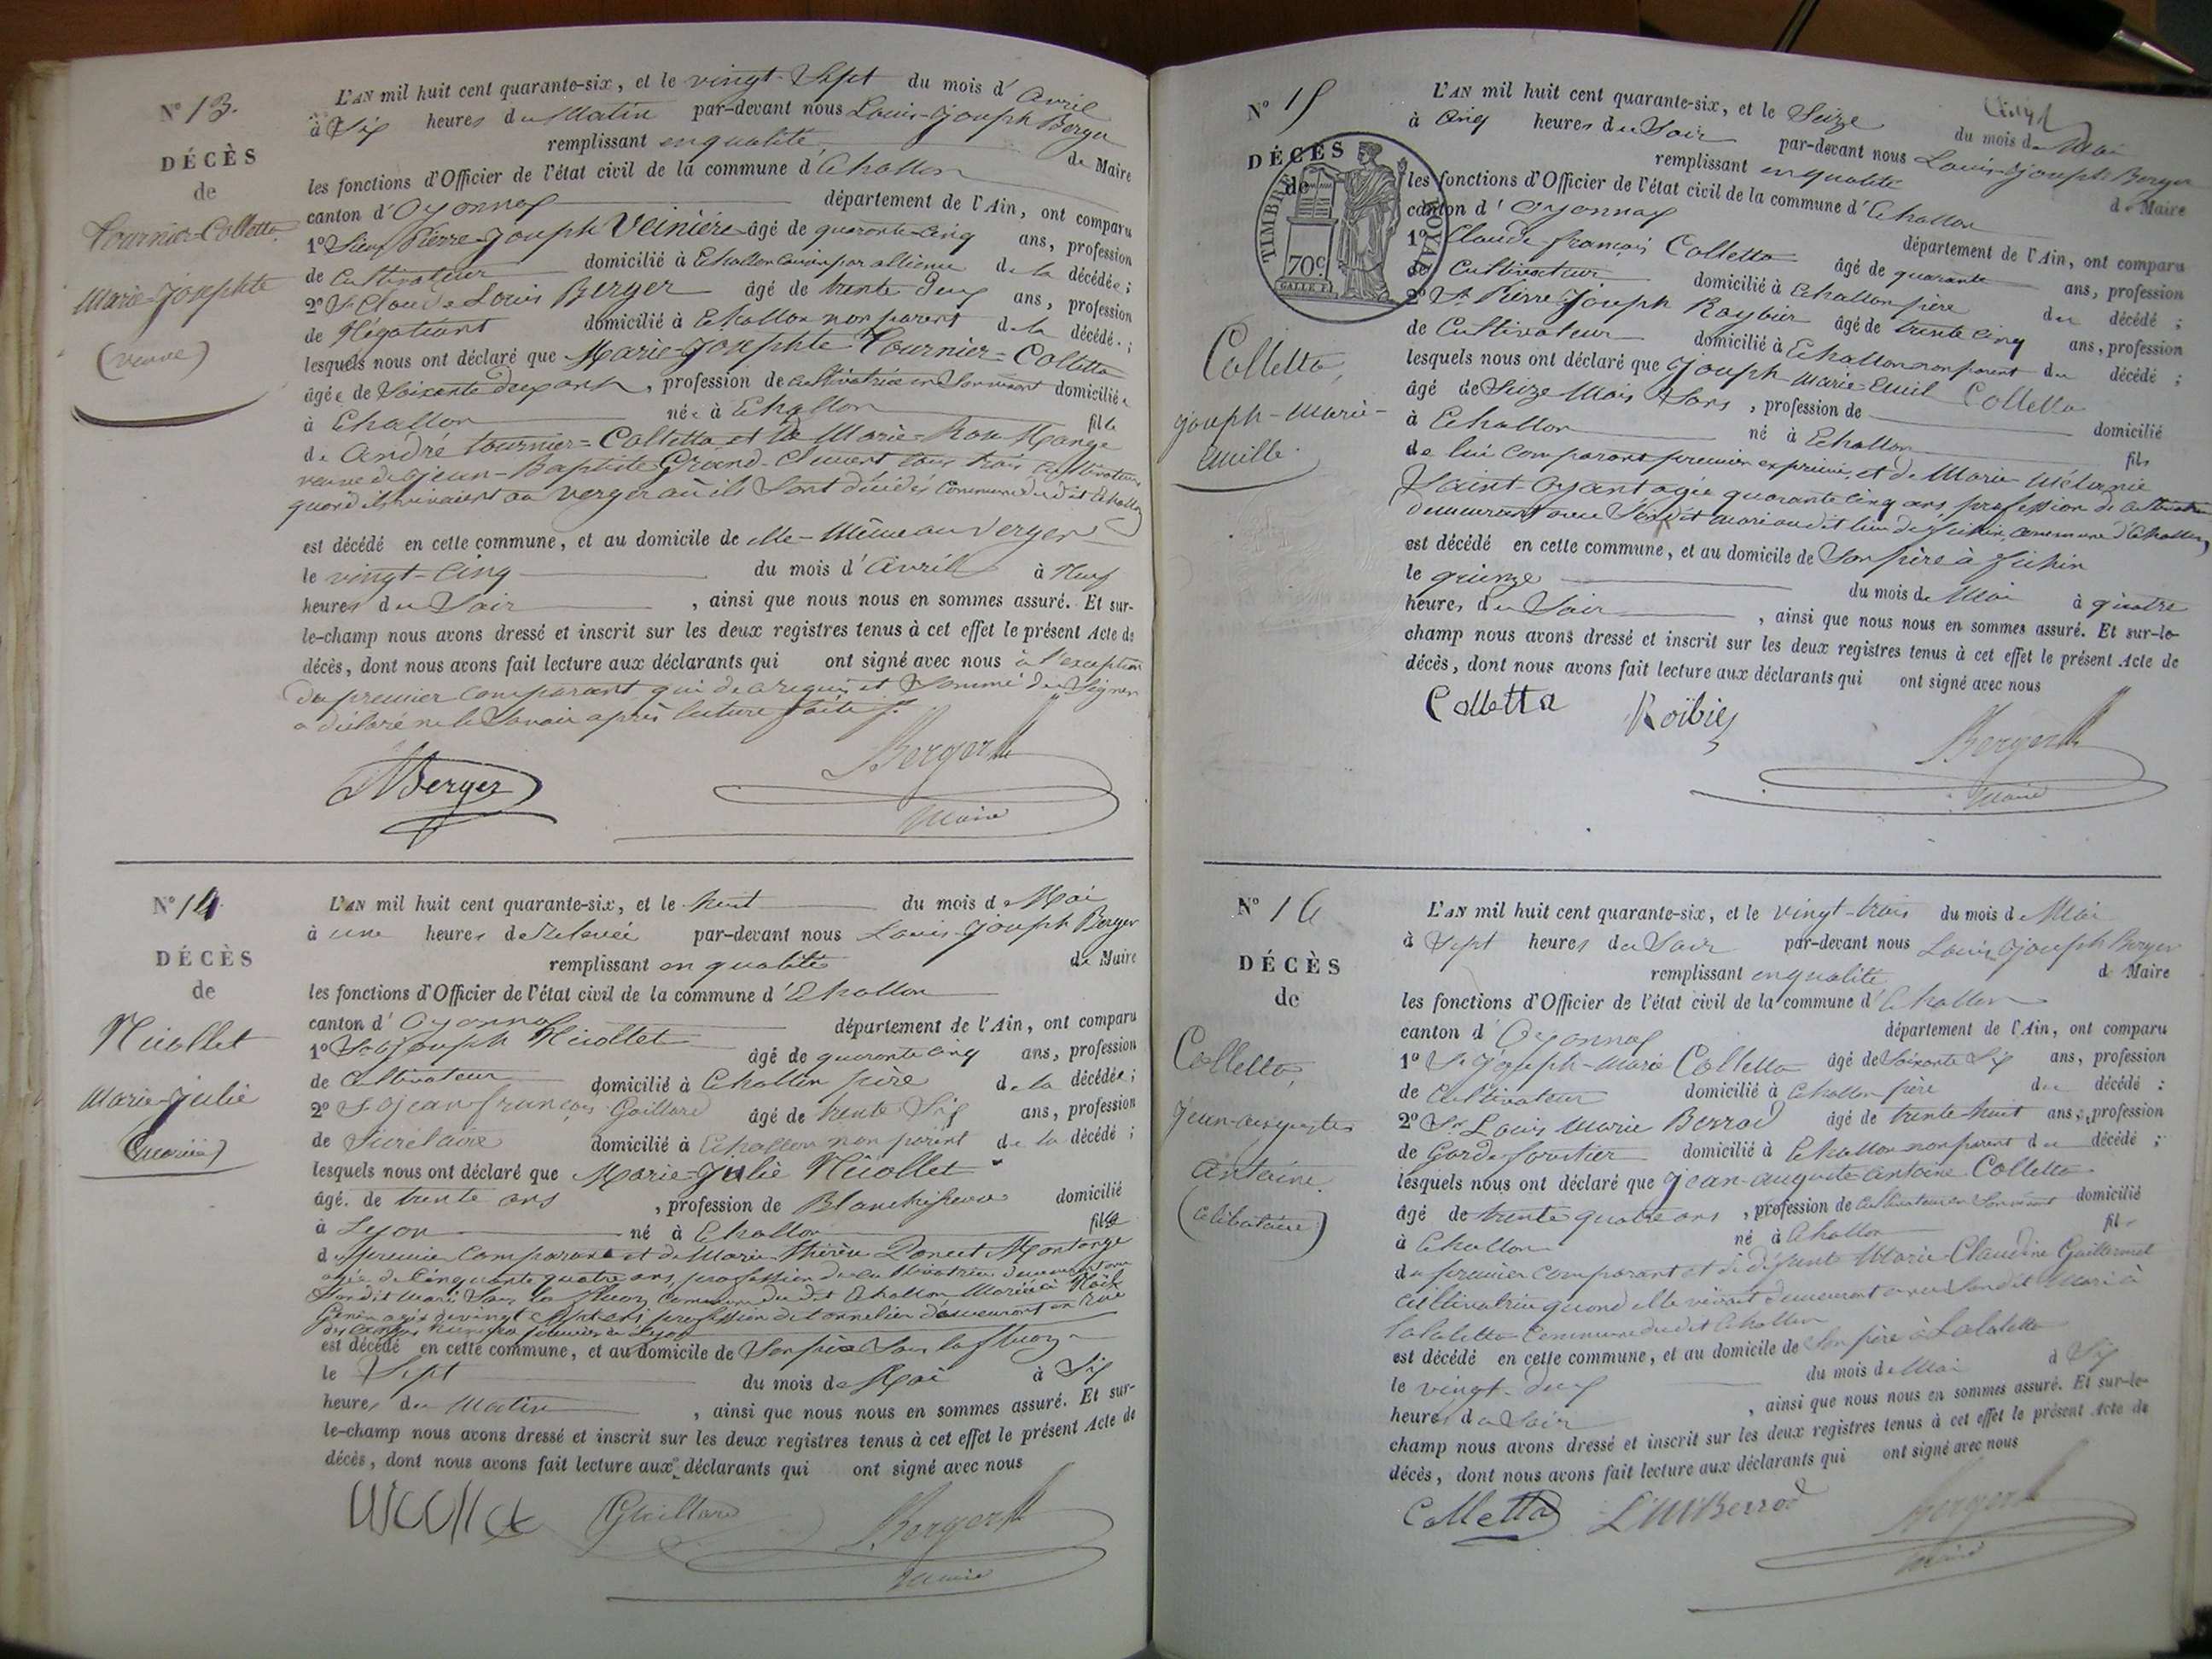 N° 13.
DÉCÈS
de
Tournier-Colletta
Marie-Josephte
(veuve)
L'AN mil huit cent quarante-six, et le vingt-Sept du mois d'Avril
à Six heures du Matin par-devant nous Louis-Joseph Berger
remplissant en qualité de Maire
les fonctions d'Officier de l'état civil de la commune d'Echallon
canton d'Oyonnax département de l'Ain, ont comparu
1° Sieur Pierre-Joseph Veinière âgé de quarante-cinq ans, profession
de Cultivateur domicilié à Echallon cousin par alliance de la décédée;
2° Sr Claude Louis Berger âgé de trente deux ans, profession
de Négotiant domicilié à Echallon non parent de la décédé.;
lesquels nous ont déclaré que Marie-Josephte Tournier-Colletta
âgée de Soixante deux ans, profession de cultivatrice en Son vivant domiciliée
à Echallon née à Echallon fille
de André Tournier-Colletta et de Marie-Rose Mange
veuve de Jean-Baptiste Grand-Clement, tous trois Cultivateurs
quand ils vivaient au Verger où ils Sont décédés Commune du dit Echallon
est décédé en cette commune, et au domicile de elle-Même au Verger
le vingt-Cinq du mois d'Avril à Neuf
heures du Soir, ainsi que nous nous en sommes assuré. Et sur-
le-champ nous avons dressé et inscrit sur les deux registres tenus à cet effet le présent Acte de
décès, dont nous avons fait lecture aux déclarants qui ont signé avec nous à l'exception
du premier comparant qui de ce requis et Sommé de Signer
a déclaré ne le Savoir après lecture faite
Berger
Berger
Maire
N° 14
DÉCÈS
de
Nicollet
Marie-Julie
(mariée)
L'AN mil huit cent quarante-six, et le huit du mois de Mai
à une heures de Relevée par-devant nous Louis-Joseph Berger
remplissant en qualité de Maire
les fonctions d'Officier de l'état civil de la commune d'Echallon
canton d'Oyonnax département de l'Ain, ont comparu
1° Sr Joseph Nicollet âgé de quarante cinq ans, profession
de Cultivateur domicilié à Echallon père de la décédée;
2° Sr Jean-françois Gaillard âgé de trente-Six ans, profession
de Sécrétaire domicilié à Echallon non parent de la décédé;
lesquels nous ont déclaré que Marie-Julie Nicollet
âgé. de trente ans, profession de Blanchisseuse domicilié
à Lyon né à Echallon fille
du premier Comparant et de Marie-Thérèse Poncet Montange
agée de Cinquante quatre ans, profession de cultivatrice demeurant avec
Son dit Mari Sous la fluoz, Commune du dit Echallon Mariée à
agé de vingt Sept ans profession de tonnelier demeurant en Rue
à Lyon
est décédé en cette commune, et au domicile de Son père Sous la fluoz
le Sept du mois de Mai à Six
heures du Matin, ainsi que nous nous en sommes assuré. Et sur-
le-champ nous avons dressé et inscrit sur les deux registres tenus à cet effet le présent Acte de
décès, dont nous avons fait lecture aux déclarants qui ont signé avec nous
Nicollet Gaillard Berger
Maire
N° 15
DÉCÈS
de
TIMBRE ROYAL
70c
Colletta,
Joseph-Marie-
Emille.
L'AN mil huit cent quarante-six, et le Seize du mois de Mai
à Cinq heures du Soir par-devant nous Louis-Joseph Berger
remplissant en qualité de Maire
les fonctions d'Officier de l'état civil de la commune d'Echallon
canton d'Oyonnax département de l'Ain, ont comparu
1° Claude françois Colletta âgé de quarante ans, profession
de Cultivateur domicilié à Echallon père du décédé;
2° Sr Pierre Joseph Roybier âgé de trente cinq ans, profession
de Cultivateur domicilié à Echallon non parent du décédé;
lesquels nous ont déclaré que Joseph Marie-Emil Colletta
âgé de Seize Mois, profession de domicilié
à Echallon né à Echallon fils
de lui comparant premier exprimé, et de Marie-Mélanie
Saint-Oyant agée quarante cinq ans, profession de cultivatrice
demeurant avec Son dit mari au dit lieu de commune d'Echallon
est décédé en cette commune, et au domicile de Son père à
le quinze du mois de Mai à quatre
heures du Soir, ainsi que nous nous en sommes assuré. Et sur-le-
champ nous avons dressé et inscrit sur les deux registres tenus à cet effet le présent Acte de
décès, dont nous avons fait lecture aux déclarants qui ont signé avec nous
Colletta Roibier
Berger
Maire
N° 16
DÉCÈS
de
Colletta,
Jean-auguste
Antoine.
(celibataire)
L'AN mil huit cent quarante-six, et le vingt-trois du mois de Mai
à Sept heures du Soir par-devant nous Louis Joseph Berger
remplissant en qualité de Maire
les fonctions d'Officier de l'état civil de la commune d'Echallon
canton d'Oyonnax département de l'Ain, ont comparu
1° Sr Joseph-Marie Colletta âgé de Soixante Six ans, profession
de Cultivateur domicilié à Echallon père du décédé;
2° Sr Louis Marie Berrod âgé de trente-huit ans, profession
de Garde forestier domicilié à Echallon non parent du décédé;
lesquels nous ont déclaré que Jean-auguste-antoine Colletta
âgé de trente quatre ans, profession de cultivateur en Son vivant domicilié
à Echallon né à Echallon fils
du premier comparant et de défunte Marie-Claudine Guillermet
Cultivatrice quand elle vivait demeurant avec Son dit Mari à
Lalaletta Commune du dit Echallon
est décédé en cette commune, et au domicile de Son père à Lalaletta
le vingt-deux du mois de Mai à Six
heures du Soir, ainsi que nous nous en sommes assuré. Et sur-le-
champ nous avons dressé et inscrit sur les deux registres tenus à cet effet le présent Acte de
décès, dont nous avons fait lecture aux déclarants qui ont signé avec nous
Colletta LMBerrod Berger
Maire